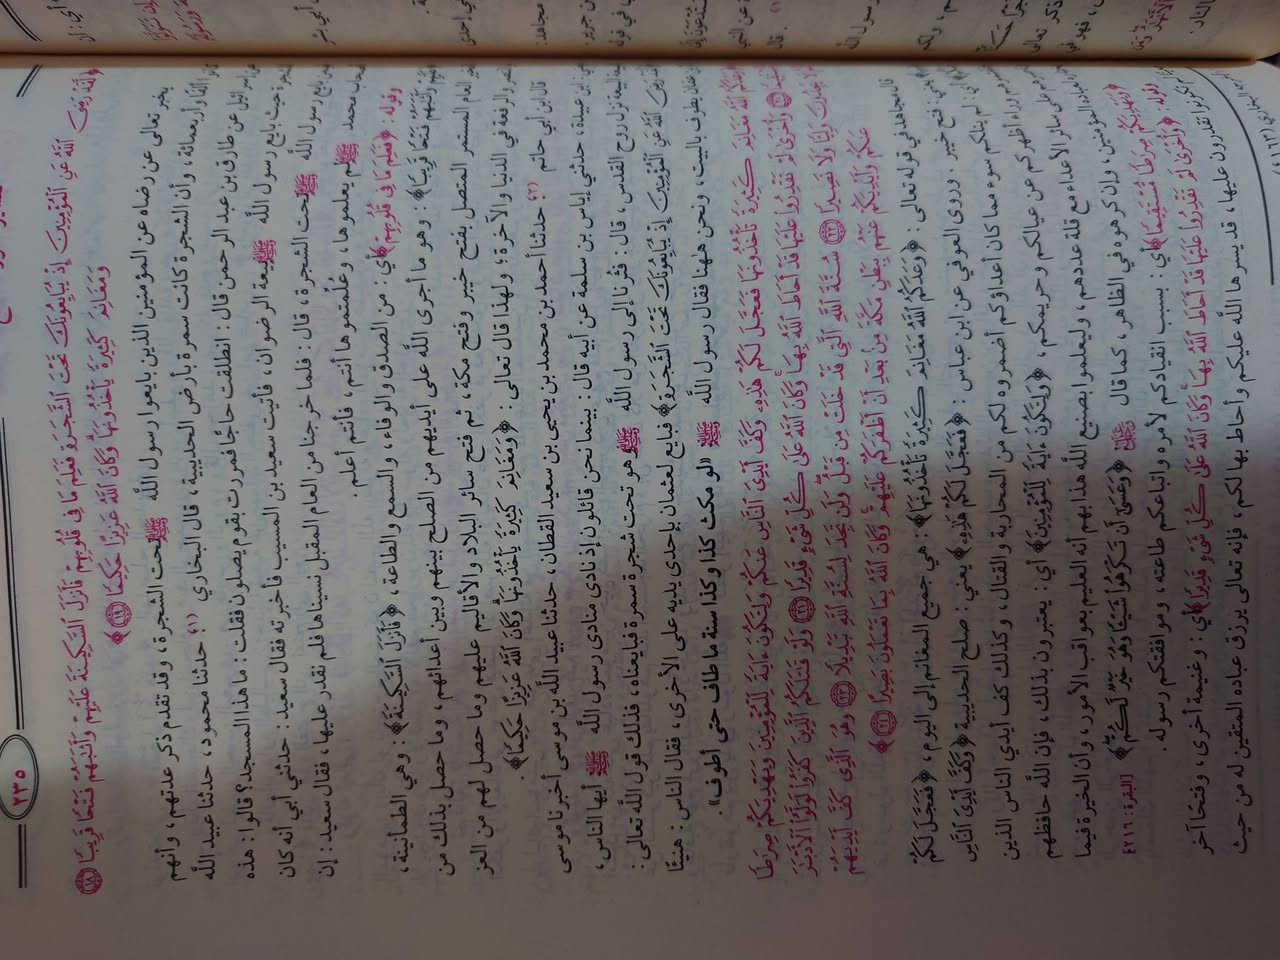 ٢٣٥
﴿لَّقَدْ رَضِيَ ٱللَّهُ عَنِ ٱلْمُؤْمِنِينَ إِذْ يُبَايِعُونَكَ تَحْتَ ٱلشَّجَرَةِ فَعَلِمَ مَا فِى قُلُوبِهِمْ فَأَنزَلَ ٱلسَّكِينَةَ عَلَيْهِمْ وَأَثَٰبَهُمْ فَتْحًا قَرِيبًا ١٨
وَمَغَانِمَ كَثِيرَةً يَأْخُذُونَهَا وَكَانَ ٱللَّهُ عَزِيزًا حَكِيمًا ١٩﴾
يخبر تعالى عن رضاه عن المؤمنين الذين بايعوا رسول الله ﷺ تحت الشجرة، وقد تقدم ذكر عدتهم، وأنهم
كانوا ألفًا وأربعمائة، وأن الشجرة كانت سمرة بأرض الحديبية، قال البخاري (١): حدثنا محمود، حدثنا عبيد الله
عن إسرائيل عن طارق بن عبد الرحمن قال: انطلقت حاجًّا فمررت بقوم يصلون فقلت: ما هذا المسجد؟ قالوا: هذه
الشجرة حيث بايع رسول الله ﷺ بيعة الرضوان، فأتيت سعيد بن المسيب فأخبرته فقال سعيد: حدثني أبي أنه كان
فيمن بايع رسول الله ﷺ تحت الشجرة، قال: فلما خرجنا من العام المقبل نسيناها فلم نقدر عليها، فقال سعيد: إن
أصحاب محمد ﷺ لم يعلموها، وعُلمتموها أنتم، فأنتم أعلم.
وقوله: ﴿فَعَلِمَ مَا فِى قُلُوبِهِمْ﴾ أي: من الصدق والوفاء، والسمع والطاعة، ﴿فَأَنزَلَ ٱلسَّكِينَةَ﴾: وهي الطمأنينة،
﴿عَلَيْهِمْ وَأَثَٰبَهُمْ فَتْحًا قَرِيبًا﴾: وهو ما أجرى الله على أيديهم من الصلح بينهم وبين أعدائهم، وما حصل بذلك من
الخير العام المستمر المتصل بفتح خيبر وفتح مكة، ثم فتح سائر البلاد والأقاليم عليهم وما حصل لهم من العز
والنصر والرفعة في الدنيا والآخرة، ولهذا قال تعالى: ﴿وَمَغَانِمَ كَثِيرَةً يَأْخُذُونَهَا وَكَانَ ٱللَّهُ عَزِيزًا حَكِيمًا﴾.
قال ابن أبي حاتم (٢): حدثنا أحمد بن محمد بن يحيى بن سعيد القطان، حدثنا عبيد الله بن موسى أخبرنا موسى
يعني ابن عبيدة، حدثني إياس بن سلمة عن أبيه قال: بينما نحن قائلون إذ نادى منادي رسول الله ﷺ أيها الناس،
البيعة البيعة نزل روح القدس، قال: فثُرنا إلى رسول الله ﷺ وهو تحت شجرة سمرة فبايعناه، فذلك قول الله تعالى:
﴿لَّقَدْ رَضِيَ ٱللَّهُ عَنِ ٱلْمُؤْمِنِينَ إِذْ يُبَايِعُونَكَ تَحْتَ ٱلشَّجَرَةِ﴾ فبايع لعثمان بإحدى يديه على الأخرى، فقال الناس: هنيئًا
عفان يطوف بالبيت، ونحن ههنا فقال رسول الله ﷺ «لو مكث كذا وكذا سنة ما طاف حتى أطوف».
﴿وَعَدَكُمُ ٱللَّهُ مَغَانِمَ كَثِيرَةً تَأْخُذُونَهَا فَعَجَّلَ لَكُمْ هَٰذِهِۦ وَكَفَّ أَيْدِىَ ٱلنَّاسِ عَنكُمْ وَلِتَكُونَ ءَايَةً لِّلْمُؤْمِنِينَ وَيَهْدِيَكُمْ صِرَٰطًا
مُّسْتَقِيمًا ٢٠ وَأُخْرَىٰ لَمْ تَقْدِرُوا۟ عَلَيْهَا قَدْ أَحَاطَ ٱللَّهُ بِهَا وَكَانَ ٱللَّهُ عَلَىٰ كُلِّ شَىْءٍ قَدِيرًا ٢١ وَلَوْ قَٰتَلَكُمُ ٱلَّذِينَ كَفَرُوا۟ لَوَلَّوُا۟ ٱلْأَدْبَٰرَ
ثُمَّ لَا يَجِدُونَ وَلِيًّا وَلَا نَصِيرًا ٢٢ سُنَّةَ ٱللَّهِ ٱلَّتِى قَدْ خَلَتْ مِن قَبْلُ وَلَن تَجِدَ لِسُنَّةِ ٱللَّهِ تَبْدِيلًا ٢٣ وَهُوَ ٱلَّذِى كَفَّ أَيْدِيَهُمْ
عَنكُمْ وَأَيْدِيَكُمْ عَنْهُم بِبَطْنِ مَكَّةَ مِنۢ بَعْدِ أَنْ أَظْفَرَكُمْ عَلَيْهِمْ وَكَانَ ٱللَّهُ بِمَا تَعْمَلُونَ بَصِيرًا ٢٤﴾
قال مجاهد في قوله تعالى: ﴿وَعَدَكُمُ ٱللَّهُ مَغَانِمَ كَثِيرَةً تَأْخُذُونَهَا﴾: هي جميع المغانم إلى اليوم، ﴿فَعَجَّلَ لَكُمْ
يعني: فتح خيبر. وروى العوفي عن ابن عباس: ﴿فَعَجَّلَ لَكُمْ هَٰذِهِۦ﴾ يعني: صلح الحديبية ﴿وَكَفَّ أَيْدِىَ ٱلنَّاسِ
أي: لم ينلكم سوء مما كان أعداؤكم أضمروه لكم من المحاربة والقتال، وكذلك كف أيدي الناس الذين
وراء أظهركم عن عيالكم وحريمكم، ﴿وَلِتَكُونَ ءَايَةً لِّلْمُؤْمِنِينَ﴾ أي: يعتبرون بذلك، فإن الله حافظهم
على سائر الأعداء مع قلة عددهم، وليعلموا بصنيع الله هذا بهم أنه العليم بعواقب الأمور، وأن الخيرة فيما
لعباده المؤمنين، وإن كرهوه في الظاهر، كما قال ﷻ ﴿وَعَسَىٰٓ أَن تَكْرَهُوا۟ شَيْـًٔا وَهُوَ خَيْرٌ لَّكُمْ﴾ [البقرة: ٢١٦]
﴿وَيَهْدِيَكُمْ صِرَٰطًا مُّسْتَقِيمًا﴾ أي: بسبب انقيادكم لأمره واتباعكم طاعته، وموافقتكم رسوله.
وقوله: ﴿وَأُخْرَىٰ لَمْ تَقْدِرُوا۟ عَلَيْهَا قَدْ أَحَاطَ ٱللَّهُ بِهَا وَكَانَ ٱللَّهُ عَلَىٰ كُلِّ شَىْءٍ قَدِيرًا﴾ أي: وغنيمة أخرى، وفتحًا آخر
لم تكونوا تقدرون عليها، قد يسرها الله عليكم وأحاط بها لكم، فإنه تعالى يرزق عباده المتقين له من حيث